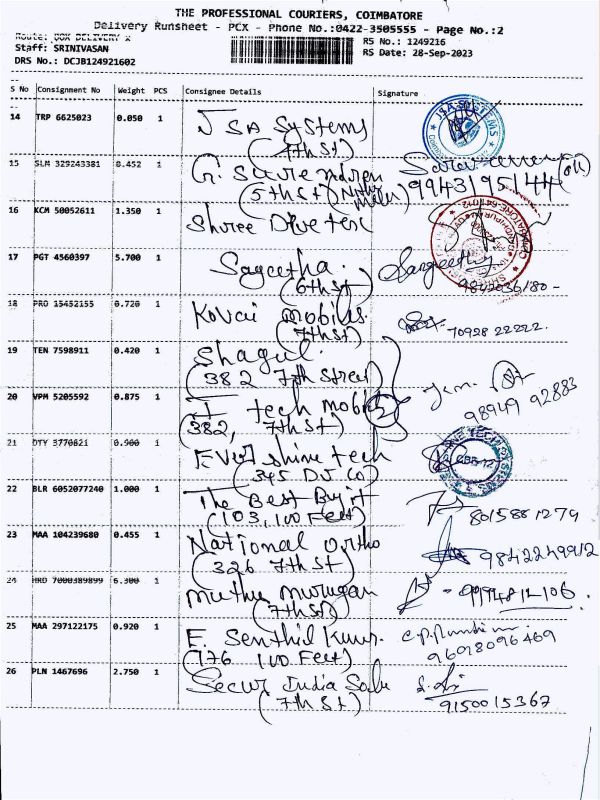 THE PROFESSIONAL COURIERS, COIMBATORE
Delivery Runsheet - PCX - Phone No.:0422-3505555 - Page No.:2
Route: DOX DELIVERY X
Staff: SRINIVASAN
DRS No.: DCJB124921602
RS No.: 1249216
RS Date: 28-Sep-2023
S No Consignment No Weight PCS Consignee Details Signature
14 TRP 6625023 0.050 1 J SA Systems
(7th St)
15 SLM 329243381 0.452 1 G. Surendren
(5th St)
9943195144
16 KCM 50052611 1.350 1 Shree
17 PGT 4560397 5.700 1 Sageetha. Sangeetha
(6th St) 9842036180 -
18 PRO 15452155 0.720 1 Kovai mobiles.
(7th St) 70928 22222.
19 TEN 7598911 0.420 1 Shagul.
(382 7th Street)
20 VPM 5205592 0.875 1 tech mobile
(382, 7th St) 98949 92883
21 DTY 3770621 0.900 1 Evershine tech
(345
22 BLR 6052077240 1.000 1 The Best Buy it
(103, 100 Feet) 8015881279
23 MAA 104239680 0.455 1 National Ortho
(326 7th St) 9842249912
24 HRD 7000389899 6.300 1 Muthu Murugan
(7th St)
25 MAA 297122175 0.920 1 E. Senthil
(176 100 Feet) 9698096469
26 PLN 1467696 2.750 1 Secur India
(7th St) 9150015367